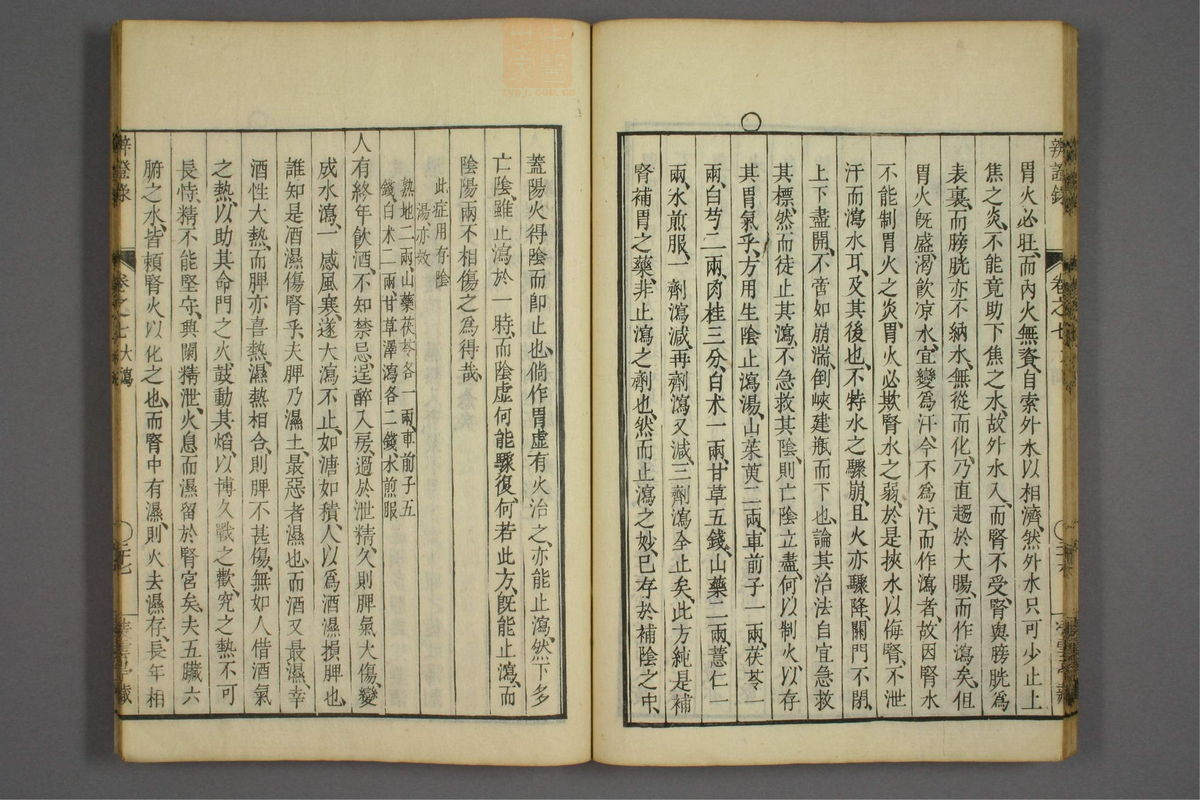 辨證錄
卷之七
胃火必旺而內火無資自索外水以相濟然外水只可少止上
焦之炎不能竟助下焦之水故外水入而腎不受腎與膀胱為
表裏而膀胱亦不納水無從而化乃直趨於大腸而作瀉矣但
胃火既盛渴飲凉水宜變為汗今不為汗而作瀉者故因腎水
不能制胃火之炎胃火必欺腎水之弱於是挾水以侮腎不泄
汗而瀉水耳及其後也不特水之驟崩且火亦驟降關門不閉
上下盡開不啻如崩湍倒峽建瓶而下也論其治法自宜急救
其標然而徒止其瀉不急救其陰則亡陰立盡何以制火以存
其胃氣乎方用生陰止瀉湯山茱萸二兩車前子一兩茯苓一
兩白芍二兩肉桂三分白术一兩甘草五錢山藥二兩薏仁一
兩水煎服一劑瀉減再劑瀉又減三劑瀉全止矣此方純是補
腎補胃之藥非止瀉之劑也然而止瀉之妙已存於補陰之中
蓋陽火得陰而即止也倘作胃虛有火治之亦能止瀉然下多
亡陰雖止瀉於一時而陰虛何能驟復何若此方既能止瀉而
陰陽兩不相傷之為得哉
此症用存陰
湯亦效
熟地二兩山藥茯苓各一兩車前子五
錢白术二兩甘草澤瀉各二錢水煎服
人有終年飲酒不知禁忌逞醉入房過於泄精久則脾氣大傷變
成水瀉一感風寒遂大瀉不止如溏如積人以為酒濕損脾也
誰知是酒濕傷腎乎夫脾乃濕土最惡者濕也而酒又最濕幸
酒性大熱而脾亦喜熱濕熱相合則脾不甚傷無如人借酒氣
之熱以助其命門之火鼓動其焰以博久戰之歡究之熱不可
長恃精不能堅守興闌精泄火息而濕留於腎宮矣夫五臟六
腑之水皆賴腎火以化之也而腎中有濕則火去濕存長年相
辨證錄
卷之七 大瀉